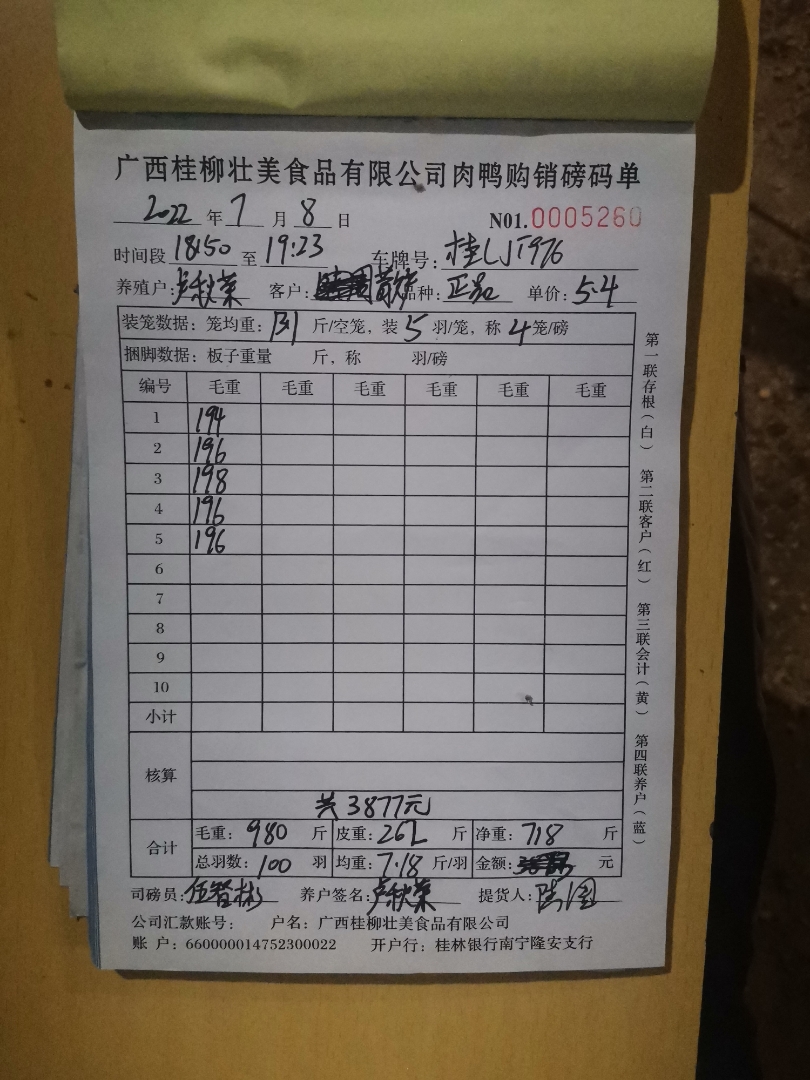 广西桂柳壮美食品有限公司肉鸭购销磅码单
2022 年 7 月 8 日 N01.0005260
时间段 18:50 至 19:23 车牌号: 桂LJT976
养殖户: 卢秋菜 客户: 品种: 单价: 5.4
装笼数据: 笼均重: 13.1 斤/空笼, 装 5 羽/笼, 称 4 笼/磅
捆脚数据: 板子重量 斤, 称 羽/磅
编号 毛重 毛重 毛重 毛重 毛重 毛重
1 194
2 196
3 198
4 196
5 196
6
7
8
9
10
小计
核算
共 3877元
合计 毛重: 980 斤 皮重: 262 斤 净重: 718 斤
总羽数: 100 羽 均重: 7.18 斤/羽 金额: 元
司磅员: 伍智彬 养户签名: 卢秋菜 提货人:
公司汇款账号: 户名: 广西桂柳壮美食品有限公司
账 户: 660000014752300022 开户行: 桂林银行南宁隆安支行
第一联存根(白) 第二联客户(红) 第三联会计(黄) 第四联养户(蓝)